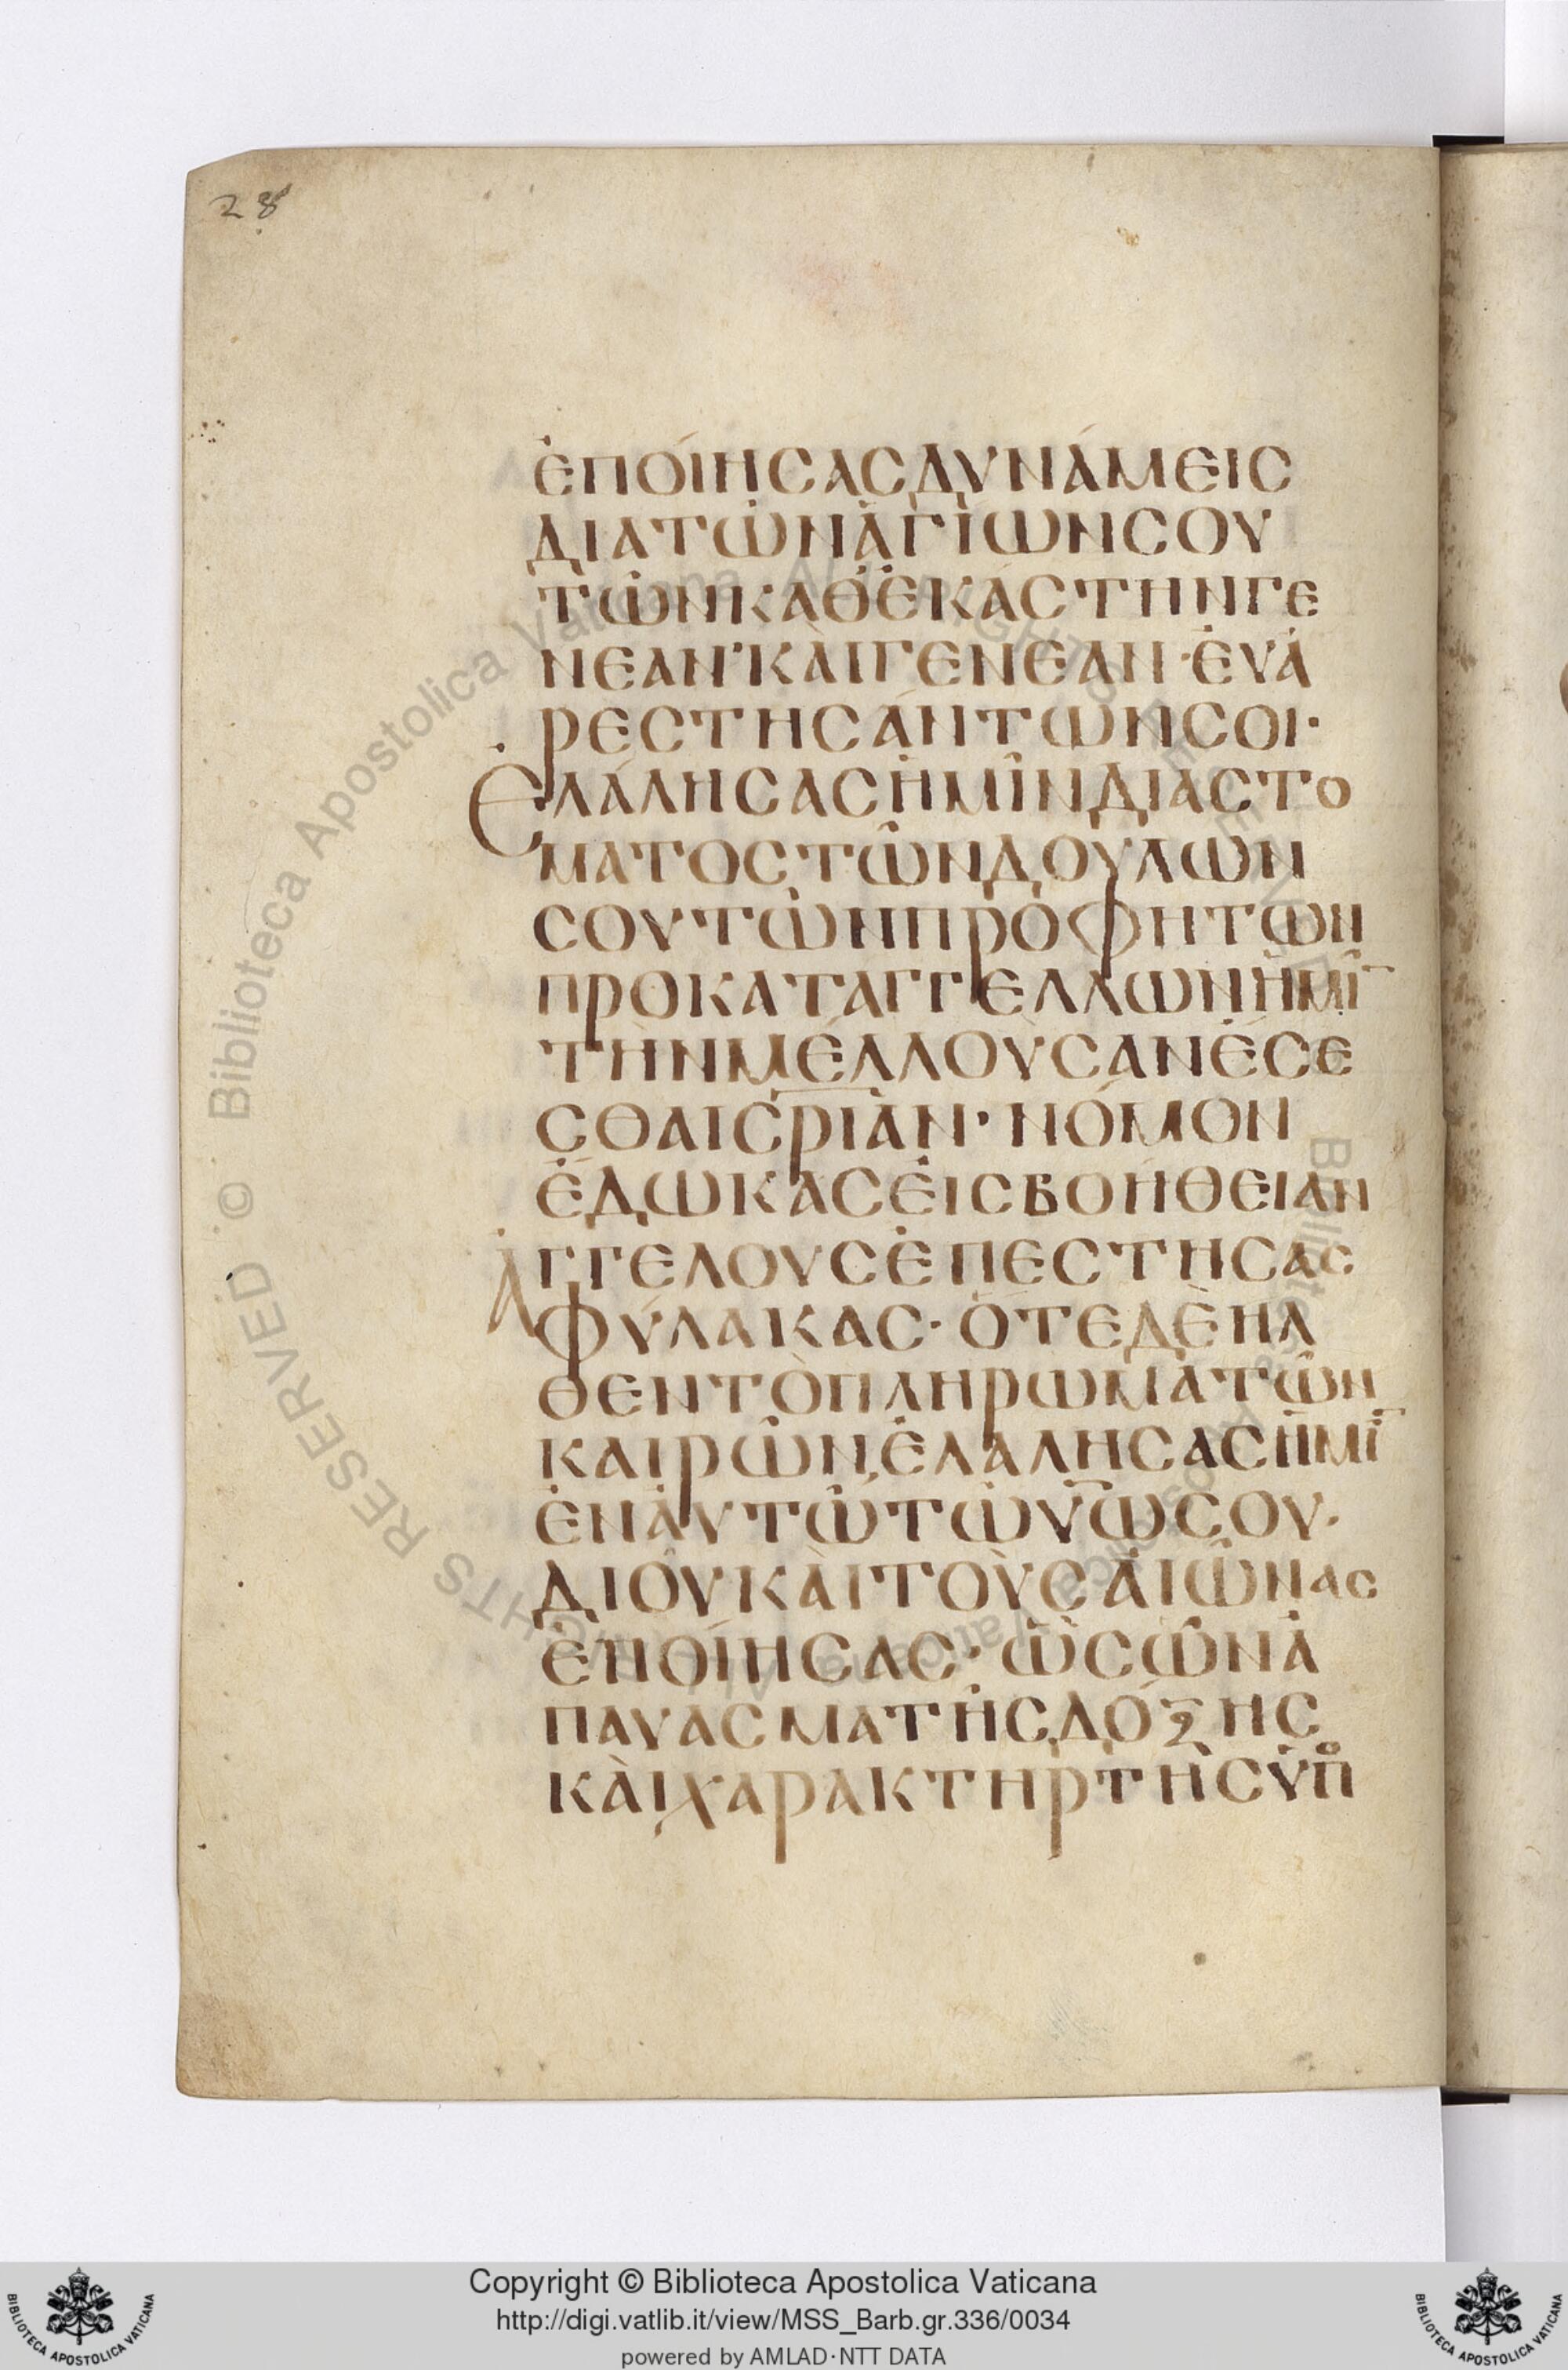 28
ἐποίησας δυνάμεις
διὰ τῶν ἁγίων σου
τῶν καθ' ἑκάστην γε
νεὰν· καὶ γενεὰν· ἐυα
ρεστησάντων σοι·
Ἐλάλησας ἡμῖν διὰ στο
ματος τῶν δούλων
σου τῶν προφητῶν
προκαταγγέλλων ἡμῖ
τὴν μέλλουσαν ἔσε
σθαι σρίαν· νόμον
ἔδωκας εἰς βοήθειαν
Ἀγγέλους ἐπέστησας
φύλακας· ὅτε δὲ ἦλ
θεν τὸ πλήρωμα τῶν
καιρῶν, ἐλάλησας ἡμῖ
ἐν αὐτῶ τῶ υω σου·
δι οὗ καὶ τοὺς αἰῶνας
ἐποίησας· ὃς ὢν ἀ
παύασμα τῆς δόξης
καὶ χαρακτὴρ τῆς ὑπο
© Biblioteca Apostolica Vaticana ALL RIGHTS RESERVED
Copyright © Biblioteca Apostolica Vaticana
http://digi.vatlib.it/view/MSS_Barb.gr.336/0034
powered by AMLAD·NTT DATA
BIBLIOTECA APOSTOLICA VATICANA
BIBLIOTECA APOSTOLICA VATICANA